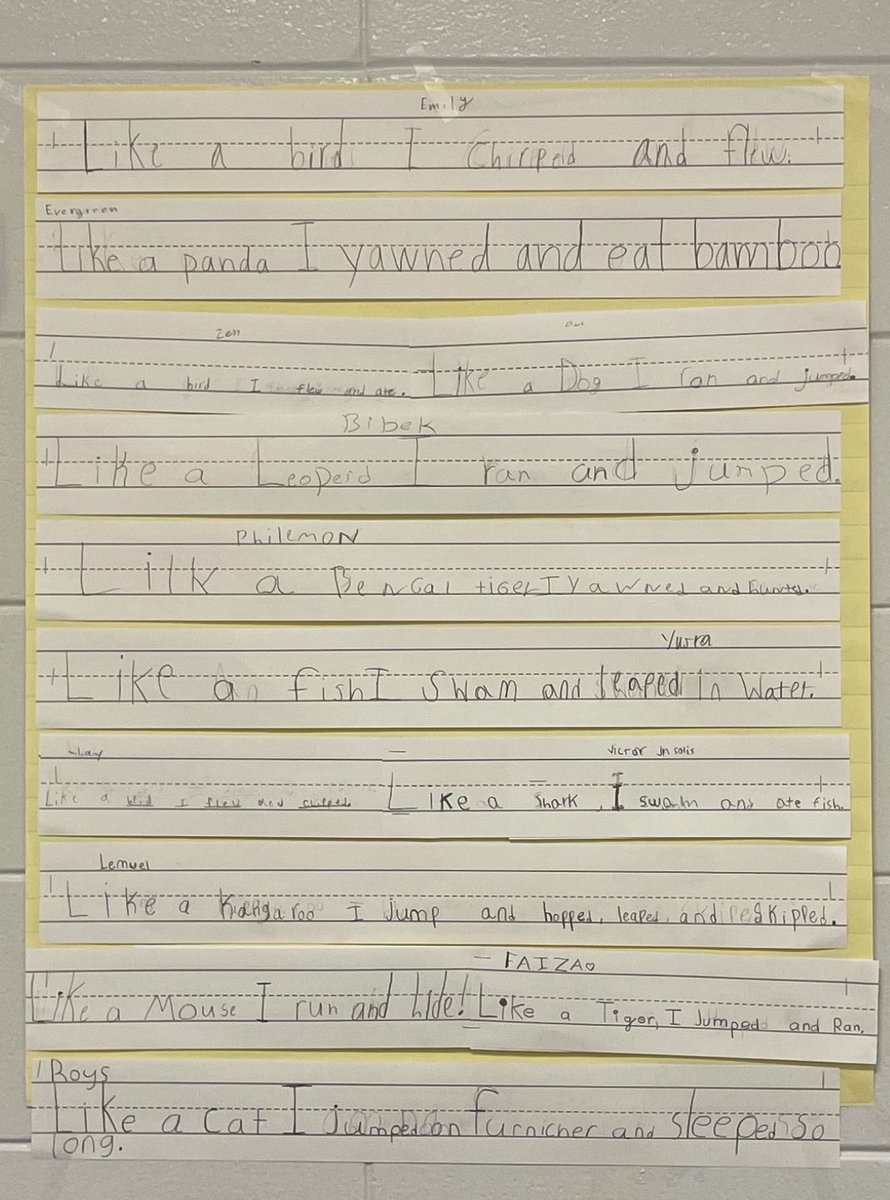 Emily
Like a bird I Chirpeid and flew.
Evergreen
Like a panda I yawned and eat bamboo
Zen
Like a bird I flew and ate. Like a Dog I ran and jumped.
Bibek
Like a Leoperd I ran and jumped.
PhilemoN
Lilk a BenGal tiger I yawned and hunted.
Yusra
Like a fish I swam and leaped in water.
Victor Jn solis
Like a bird I flew and chirped Like a shark, I swam and ate fish.
Lemuel
Like a Kangaroo I Jump and hopped, leaped, and skipled.
FAIZAO
Like a Mouse I run and hide! Like a Tiger, I Jumped and Ran.
Roys
Like a cat I jumped on furnicher and sleeped so
long.